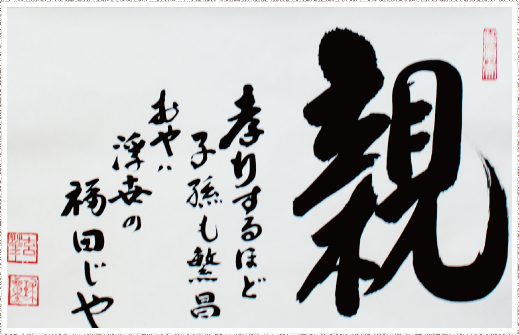 親
孝行するほど
子孫も繁昌
おやハ
浮世の
福田じや